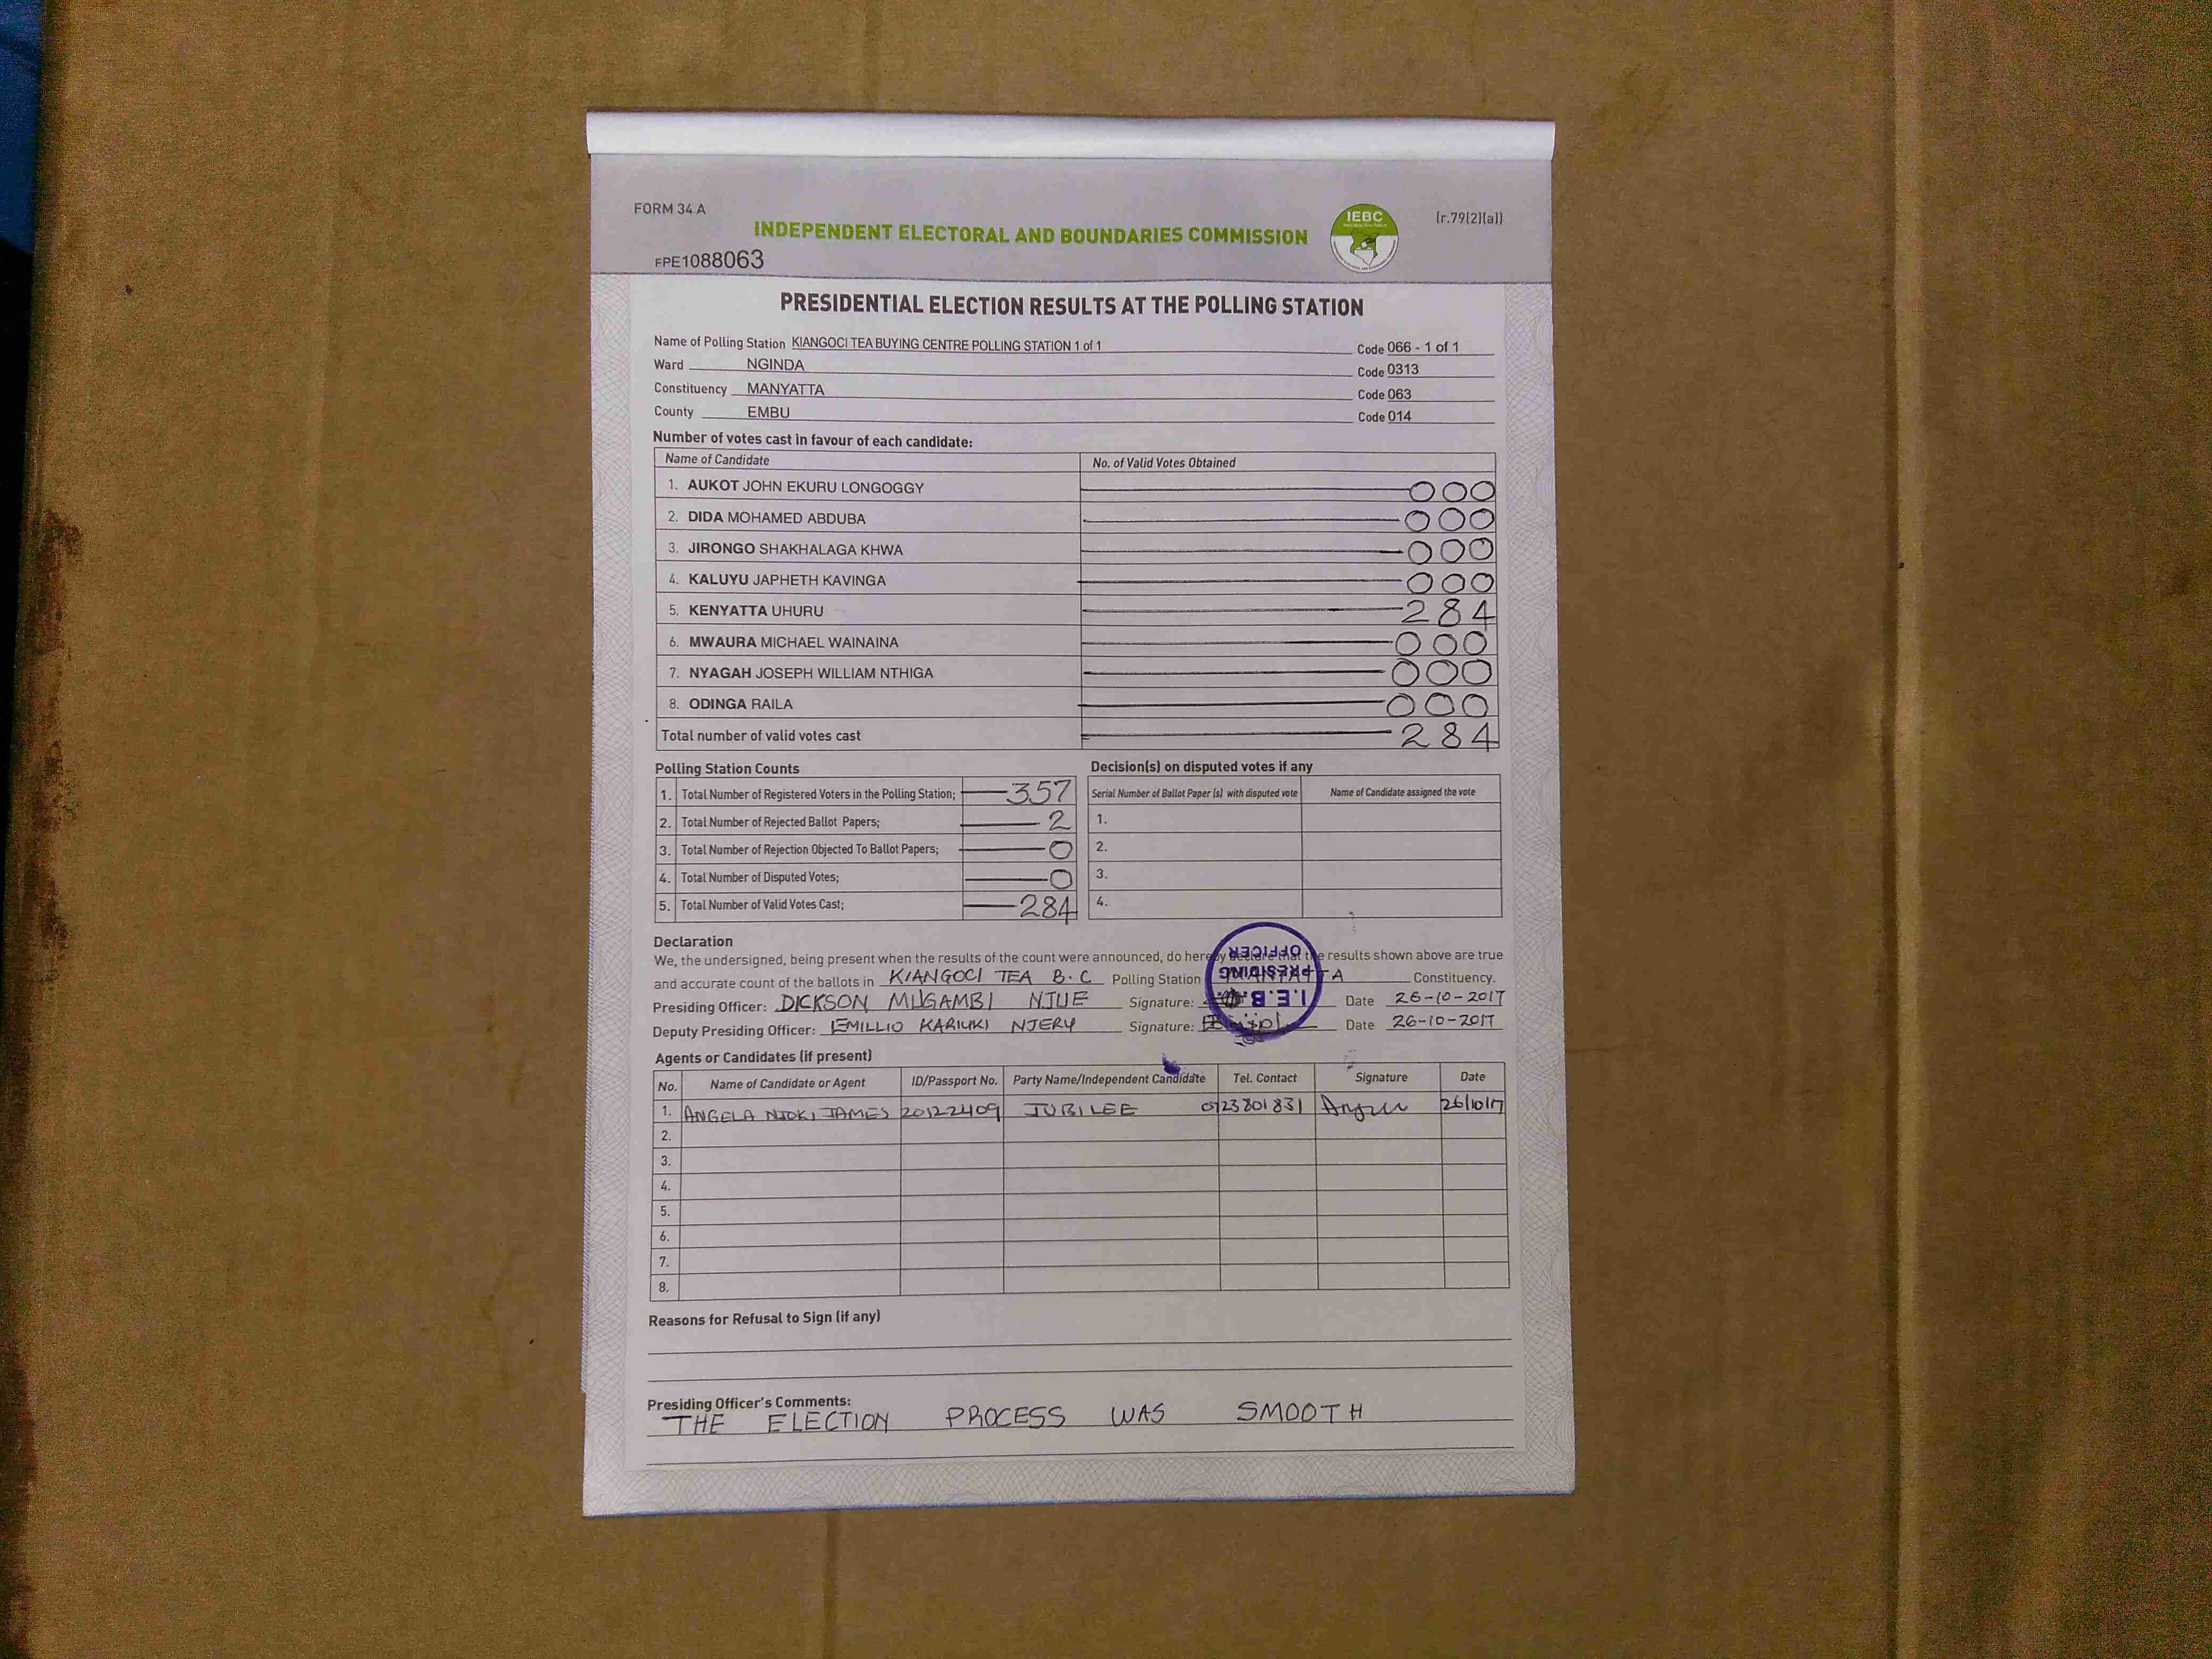 FORM 34 A
(r.79(2)(a))
IEBC
INDEPENDENT ELECTORAL AND BOUNDARIES COMMISSION
FPE1088063
PRESIDENTIAL ELECTION RESULTS AT THE POLLING STATION
Name of Polling Station KIANGOCI TEA BUYING CENTRE POLLING STATION 1 of 1 Code 066 - 1 of 1
Ward NGINDA Code 0313
Constituency MANYATTA Code 063
County EMBU Code 014
Number of votes cast in favour of each candidate:
Name of Candidate No. of Valid Votes Obtained
1. AUKOT JOHN EKURU LONGOGGY 000
2. DIDA MOHAMED ABDUBA 000
3. JIRONGO SHAKHALAGA KHWA 000
4. KALUYU JAPHETH KAVINGA 000
5. KENYATTA UHURU 284
6. MWAURA MICHAEL WAINAINA 000
7. NYAGAH JOSEPH WILLIAM NTHIGA 000
8. ODINGA RAILA 000
Total number of valid votes cast 284
Polling Station Counts
1. Total Number of Registered Voters in the Polling Station; 357
2. Total Number of Rejected Ballot Papers; 2
3. Total Number of Rejection Objected To Ballot Papers; 0
4. Total Number of Disputed Votes; 0
5. Total Number of Valid Votes Cast; 284
Decision(s) on disputed votes if any
Serial Number of Ballot Paper (s) with disputed vote Name of Candidate assigned the vote
1.
2.
3.
4.
Declaration
We, the undersigned, being present when the results of the count were announced, do hereby declare that the results shown above are true
and accurate count of the ballots in KIANGOCI TEA B.C Polling Station MANYATTA Constituency.
Presiding Officer: DICKSON MUGAMBI NJUE Signature: Date 26-10-2017
Deputy Presiding Officer: EMILLIO KARIUKI NJERU Signature: Date 26-10-2017
I.E.B.C.
PRESIDING
OFFICER
Agents or Candidates (if present)
No. Name of Candidate or Agent ID/Passport No. Party Name/Independent Candidate Tel. Contact Signature Date
1. ANGELA NJOKI JAMES 20122409 JUBILEE 0723801831 26/10/17
2.
3.
4.
5.
6.
7.
8.
Reasons for Refusal to Sign (if any)
Presiding Officer's Comments:
THE ELECTION PROCESS WAS SMOOTH